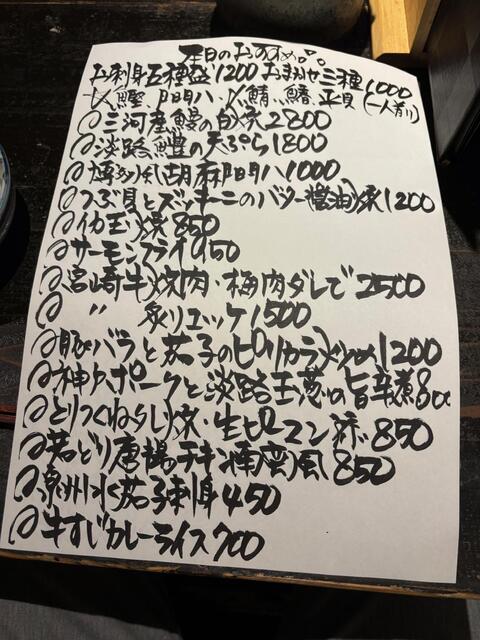 本日のおすすめ
お刺身五種盛1200 おまかせ三種1000
〆鰹、阳明八、〆鯖、鰆、平貝(一人前)
三河産鰻の白焼2800
淡路鱧の天ぷら1800
博多風胡麻阳明八1000
つぶ貝とズッキーニのバター醤油焼1200
イカ玉焼850
サーモンフライ950
宮崎牛焼肉・梅肉ダレで2500
〃 炙りユッケ1500
豚バラと茄子のピリカラ炒め1200
神戸ポークと淡路玉葱の旨辛煮800
とりつくね照し焼・生ピーマン添850
若どり唐揚チキン南蛮風850
泉州水茄子刺身450
牛すじカレーライス700